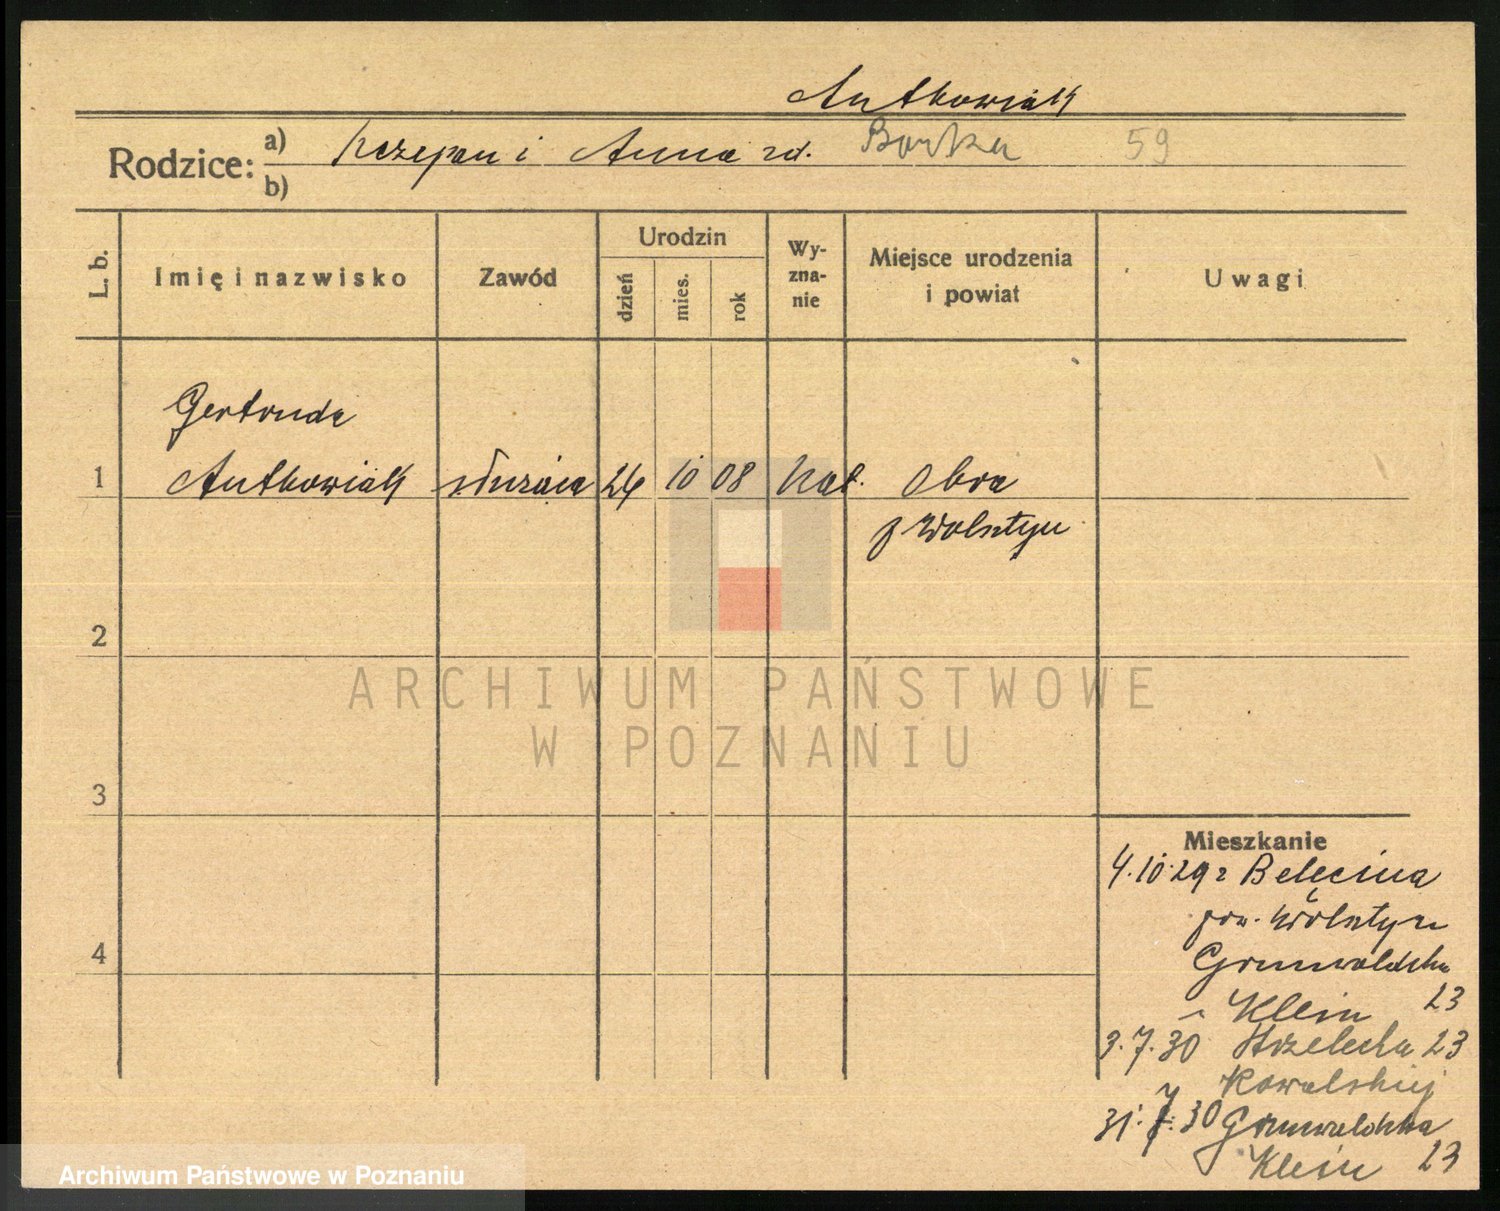 Antkowiak
Rodzice: a) Szczepan i Anna zd. Borka 59
b)
L. b.
Imię i nazwisko
Zawód
Urodzin
dzień
mies.
rok
Wy-
zna-
nie
Miejsce urodzenia
i powiat
Uwagi
Gertruda
1 Antkowiak służąca 24 10 08 kat. Obra
p Wolsztyn
2
3
4
Mieszkanie
4.10.29 z Belęcina
pow. Wolsztyn
Grunwaldzka
Klein 23
3.7.30 Strzelecka 23
Kowalskiej
31.7.30 Grunwaldzka
Klein 23
ARCHIWUM PAŃSTWOWE
W POZNANIU
Archiwum Państwowe w Poznaniu